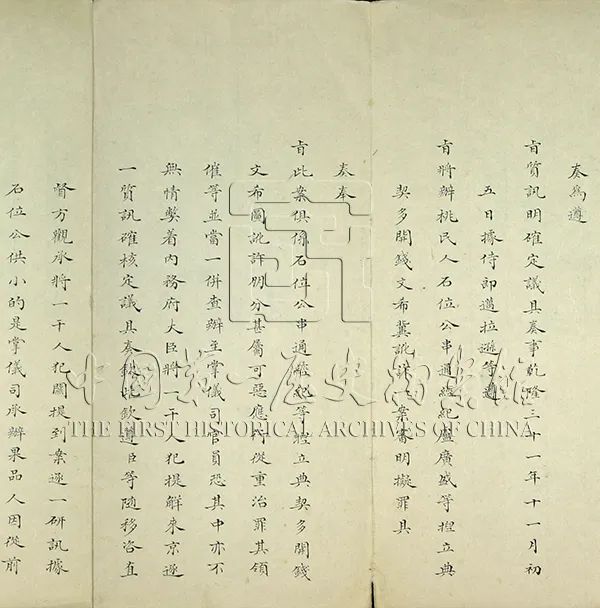 奏為遵
旨質訊明確定議具奏事乾隆三十一年十一月初
五日據侍郎邁拉遜等遵
旨將辦桃民人石位公串通經紀盧廣盛等捏立典
契多開錢文希冀訛詐一案審明擬罪具
奏奉
旨此案俱係石位公串通經紀等捏立典契多開錢
文希圖訛詐朋分甚屬可惡應行從重治罪其領
催等並當一併查辦至掌儀司官員恐其中亦不
無情弊著內務府大臣將一干人犯提解來京逐
一質訊確核定議具奏欽此欽遵臣等隨移咨直
督方觀承將一干人犯關提到案逐一研訊據
石位公供小的是掌儀司承辦果品人因從前
中國第一歷史檔案館
THE FIRST HISTORICAL ARCHIVES OF CHINA